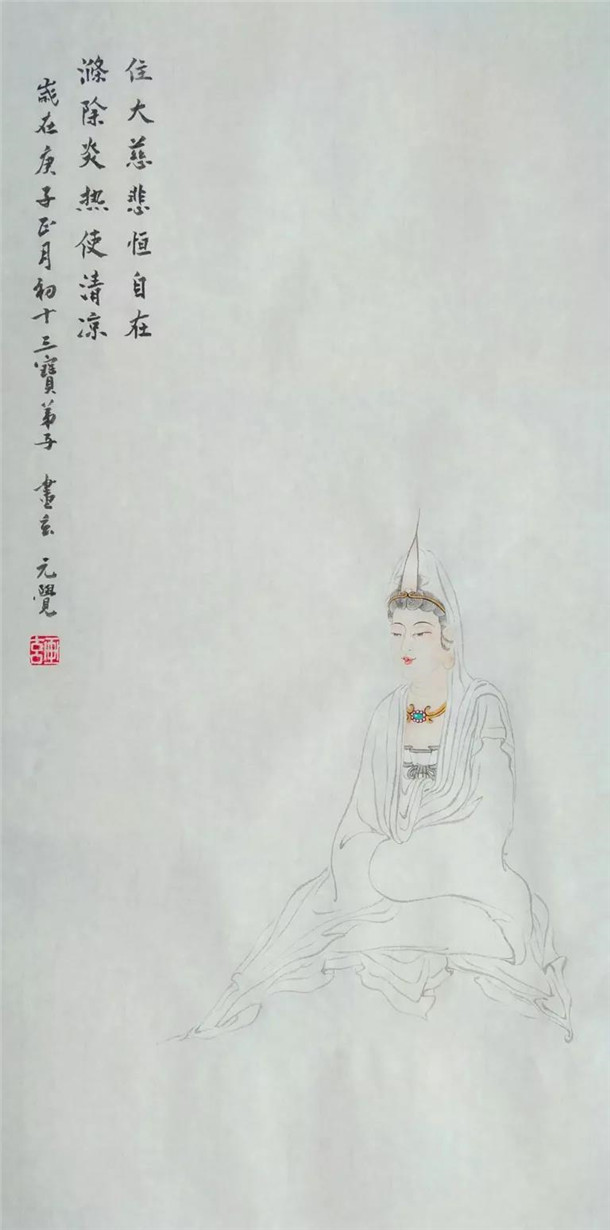 住大慈悲恒自在
滌除炎热使清凉
歲在庚子正月初十三寳弟子 畫玄 元覺